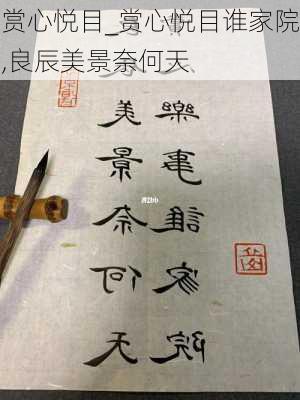 赏心悦目_赏心悦目谁家院
,良辰美景奈何天
美景奈何天
樂事誰家院